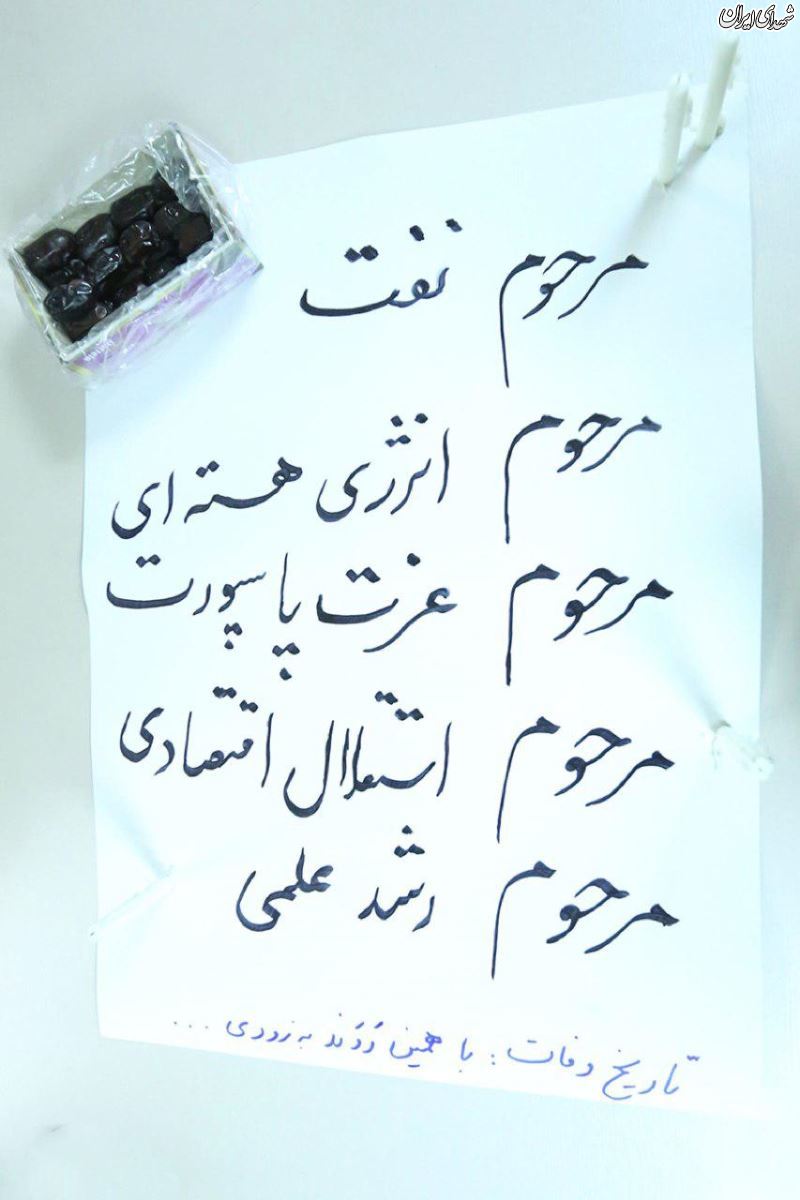 شهدای ایران
مرحوم نفت
مرحوم انرژی هسته ای
مرحوم عزت پاسپورت
مرحوم استقلال اقتصادی
مرحوم رشد علمی
تاریخ وفات: با همین رَوَند به زودی ...